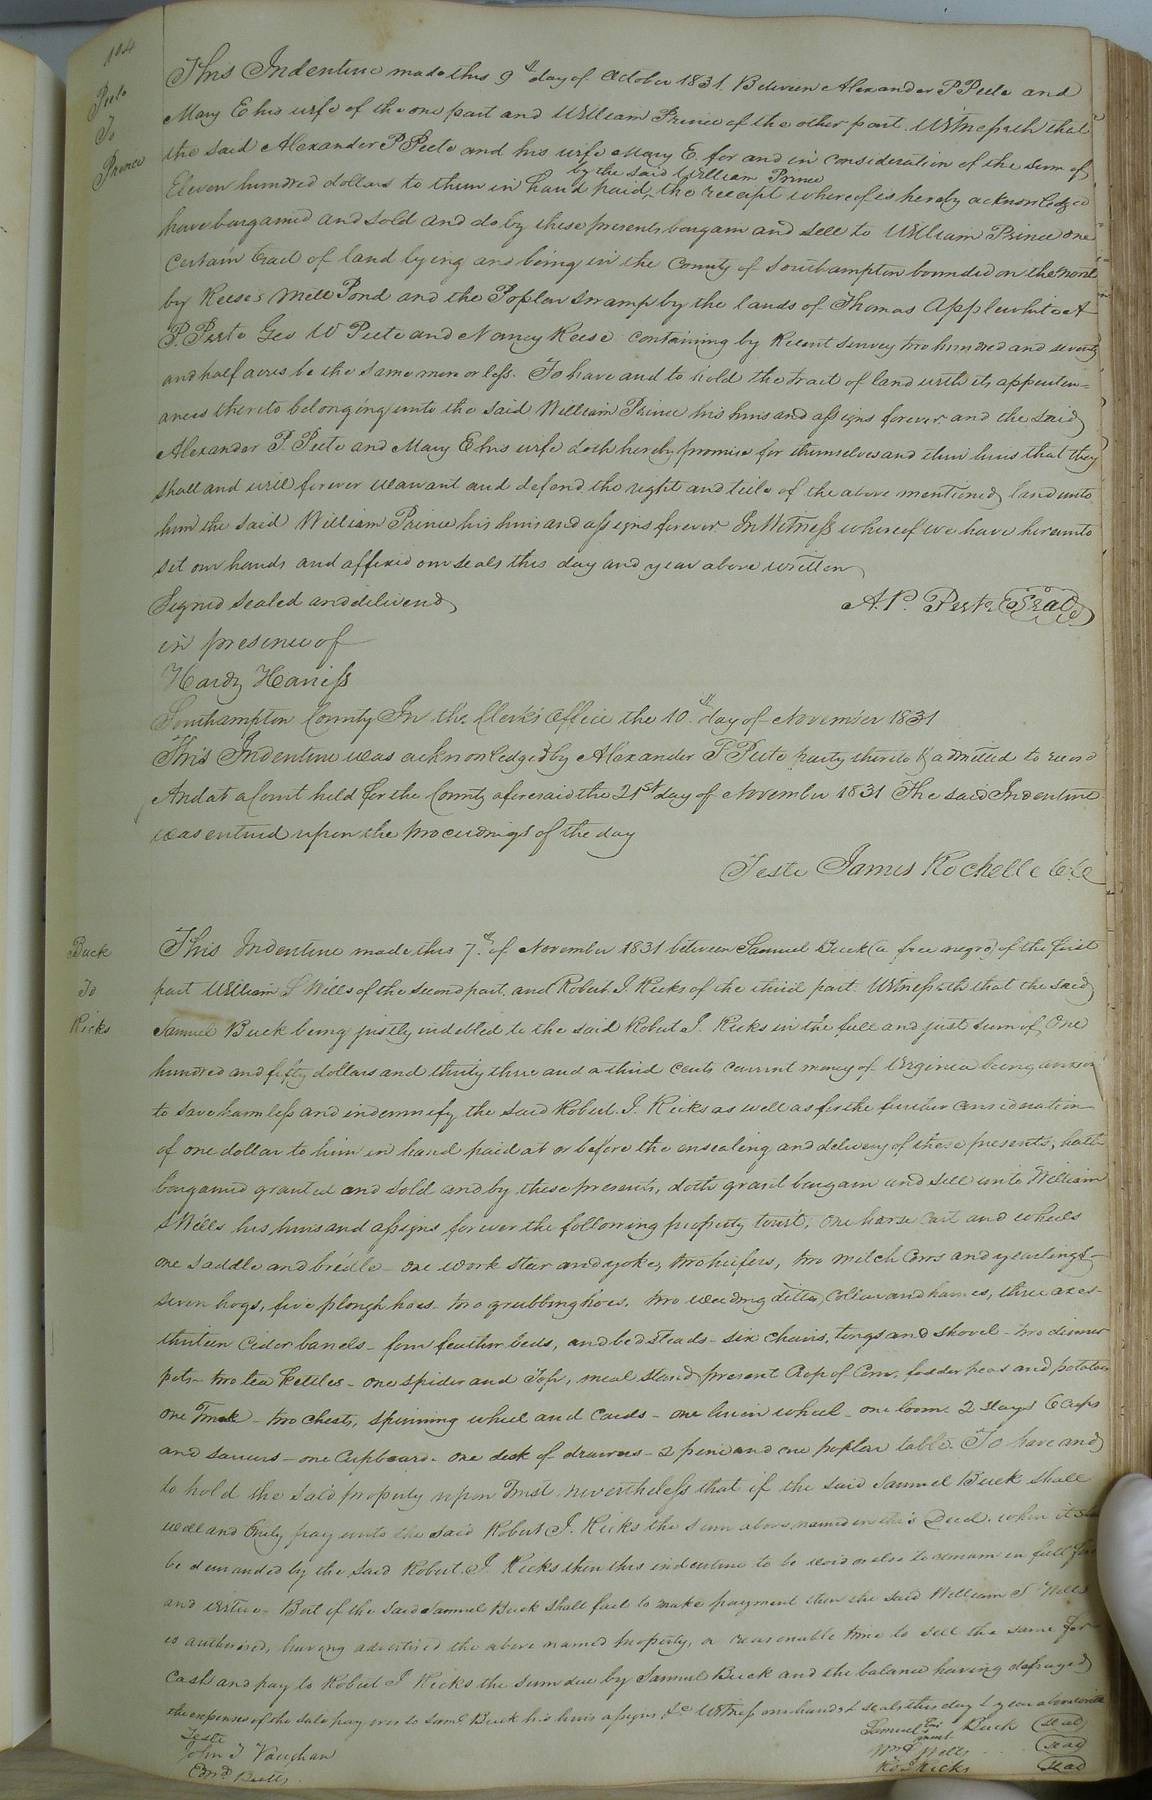 104
Peete
To
Prince
This Indenture made this 9th day of October 1831. Between Alexander P Peete and
Mary E his wife of the one part and William Prince of the other part Witnesseth that
the said Alexander P Peete and his wife Mary E. for and in consideration of the sum of
by the said William Prince
Eleven hundred dollars to them in hand paid, the receipt whereof is hereby acknowledged
have bargained and sold and do by these presents bargain and sell to William Prince one
Certain tract of land lying and being in the County of Southampton bounded on the north
by Reese's Mill Pond and the Poplar Swamp by the lands of Thomas Applewhite A
P. Peete Geo W Peete and Nancy Reese containing by Recent survey two hundred and seventy
and half acres be the same more or less. To have and to hold the tract of land with its appurten=
ances thereto belonging unto the said William Prince his heirs and assigns forever and the said
Alexander P. Peete and Mary E his wife doth hereby promise for themselves and their heirs that they
shall and will forever warrant and defend the right and title of the above mentioned land unto
him the said William Prince his heirs and assigns forever In Witness whereof we have hereunto
set our hands and affixed our seals this day and year above written
Signed sealed and delivered A. P. Peete Seal
in presence of
Hardy Hariss
Southampton County In the Clerk's Office the 10th day of November 1831
This Indenture was acknowledged by Alexander P Peete party thereto & admitted to record
And at a Court held for the County aforesaid the 21st day of November 1831 The said Indenture
was entered upon the proceedings of the day
Teste James Rochelle
Buck
To
Ricks
This Indenture made this 7th of November 1831 between Samuel Buck (a free negro) of the first
part William S Wills of the second part, and Robert. J. Ricks of the third part. Witnesseth that the said
Samuel Buck being justly indebted to the said Robert J. Ricks in the full and just sum of One
hundred and fifty dollars and thirty three and a third cents current money of Virginia being
to save harmless and indemnify the said Robert. J. Ricks as well as for the further consideration
of one dollar to him in hand paid at or before the ensealing and delivery of these presents, hath
bargained granted and sold and by these presents, doth grant bargain and sell unto William
S Wills his heirs and assigns forever the following property towit, One horse Cart and wheels
one saddle and bridle - one work steer and yoke, two heifers, two milch Cows and yearlings -
seven hogs, five plough hoes - two grubbing hoes, two weeding ditto, Collar and hames, three axes -
thirteen Cider barrels - four feather beds, and bedsteads - six chairs, tongs and shovel - two dinner
pots - two tea kettles - one spider and Top, meal stand, present Crop of Corn, fodder peas and potatoes
one Trunk - two chests, spinning wheel and Cards - one linen wheel - one loom 2 slays 6 Cups
and saucers - one Cupboard - one desk of drawers - 2 pine and one poplar table. To have and
to hold the said property upon Trust nevertheless that if the said Samuel Buck shall
well and truly pay unto the said Robert J. Ricks the sum above named in this Deed. when it shall
be demanded by the said Robert. J. Ricks then this indenture to be void or else to remain in full force
and virtue - But if the said Samuel Buck shall fail to make payment then the said William S Wills
is authorised, having advertised the above named property, a reasonable time to sell the same for
Cash and pay to Robert J Ricks the sum due by Samuel Buck and the balance having defrayed
the expenses of the sale pay over to Saml Buck his heirs assigns &c Witness our hands & seals this day & year above
Teste Samuel his mark Buck Seal
John T Vaughan Wm S Wills Seal
Edwd Butts Ro J Ricks Seal